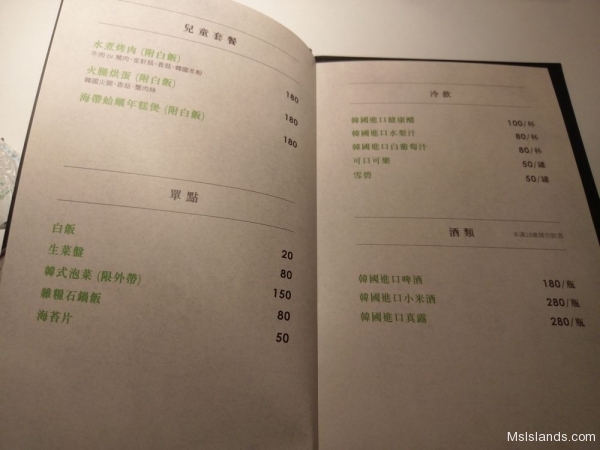 兒童套餐
水煮烤肉 (附白飯)
180
火腿烘蛋 (附白飯)
180
海帶蛤蠣年糕煲 (附白飯)
180
單點
白飯 20
生菜盤 80
韓式泡菜 (限外帶) 150
雜糧石鍋飯 80
海苔片 50
冷飲
韓國進口健康醋 100/杯
韓國進口水梨汁 80/杯
韓國進口白葡萄汁 80/杯
可口可樂 50/罐
雪碧 50/罐
酒類
韓國進口啤酒 180/瓶
韓國進口小米酒 280/瓶
韓國進口真露 280/瓶
MsIslands.com